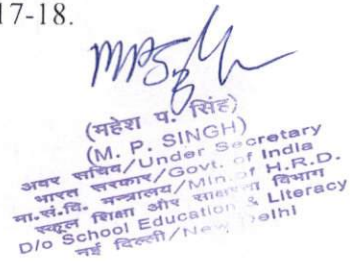 17-18.
(महेश प. सिंह)
(M. P. SINGH)
अवर सचिव/Under Secretary
भारत सरकार/Govt. of India
मा.सं.वि. मन्त्रालय/Min. of H.R.D.
स्कूल शिक्षा और साक्षरता विभाग
D/o School Education & Literacy
नई दिल्ली/New Delhi